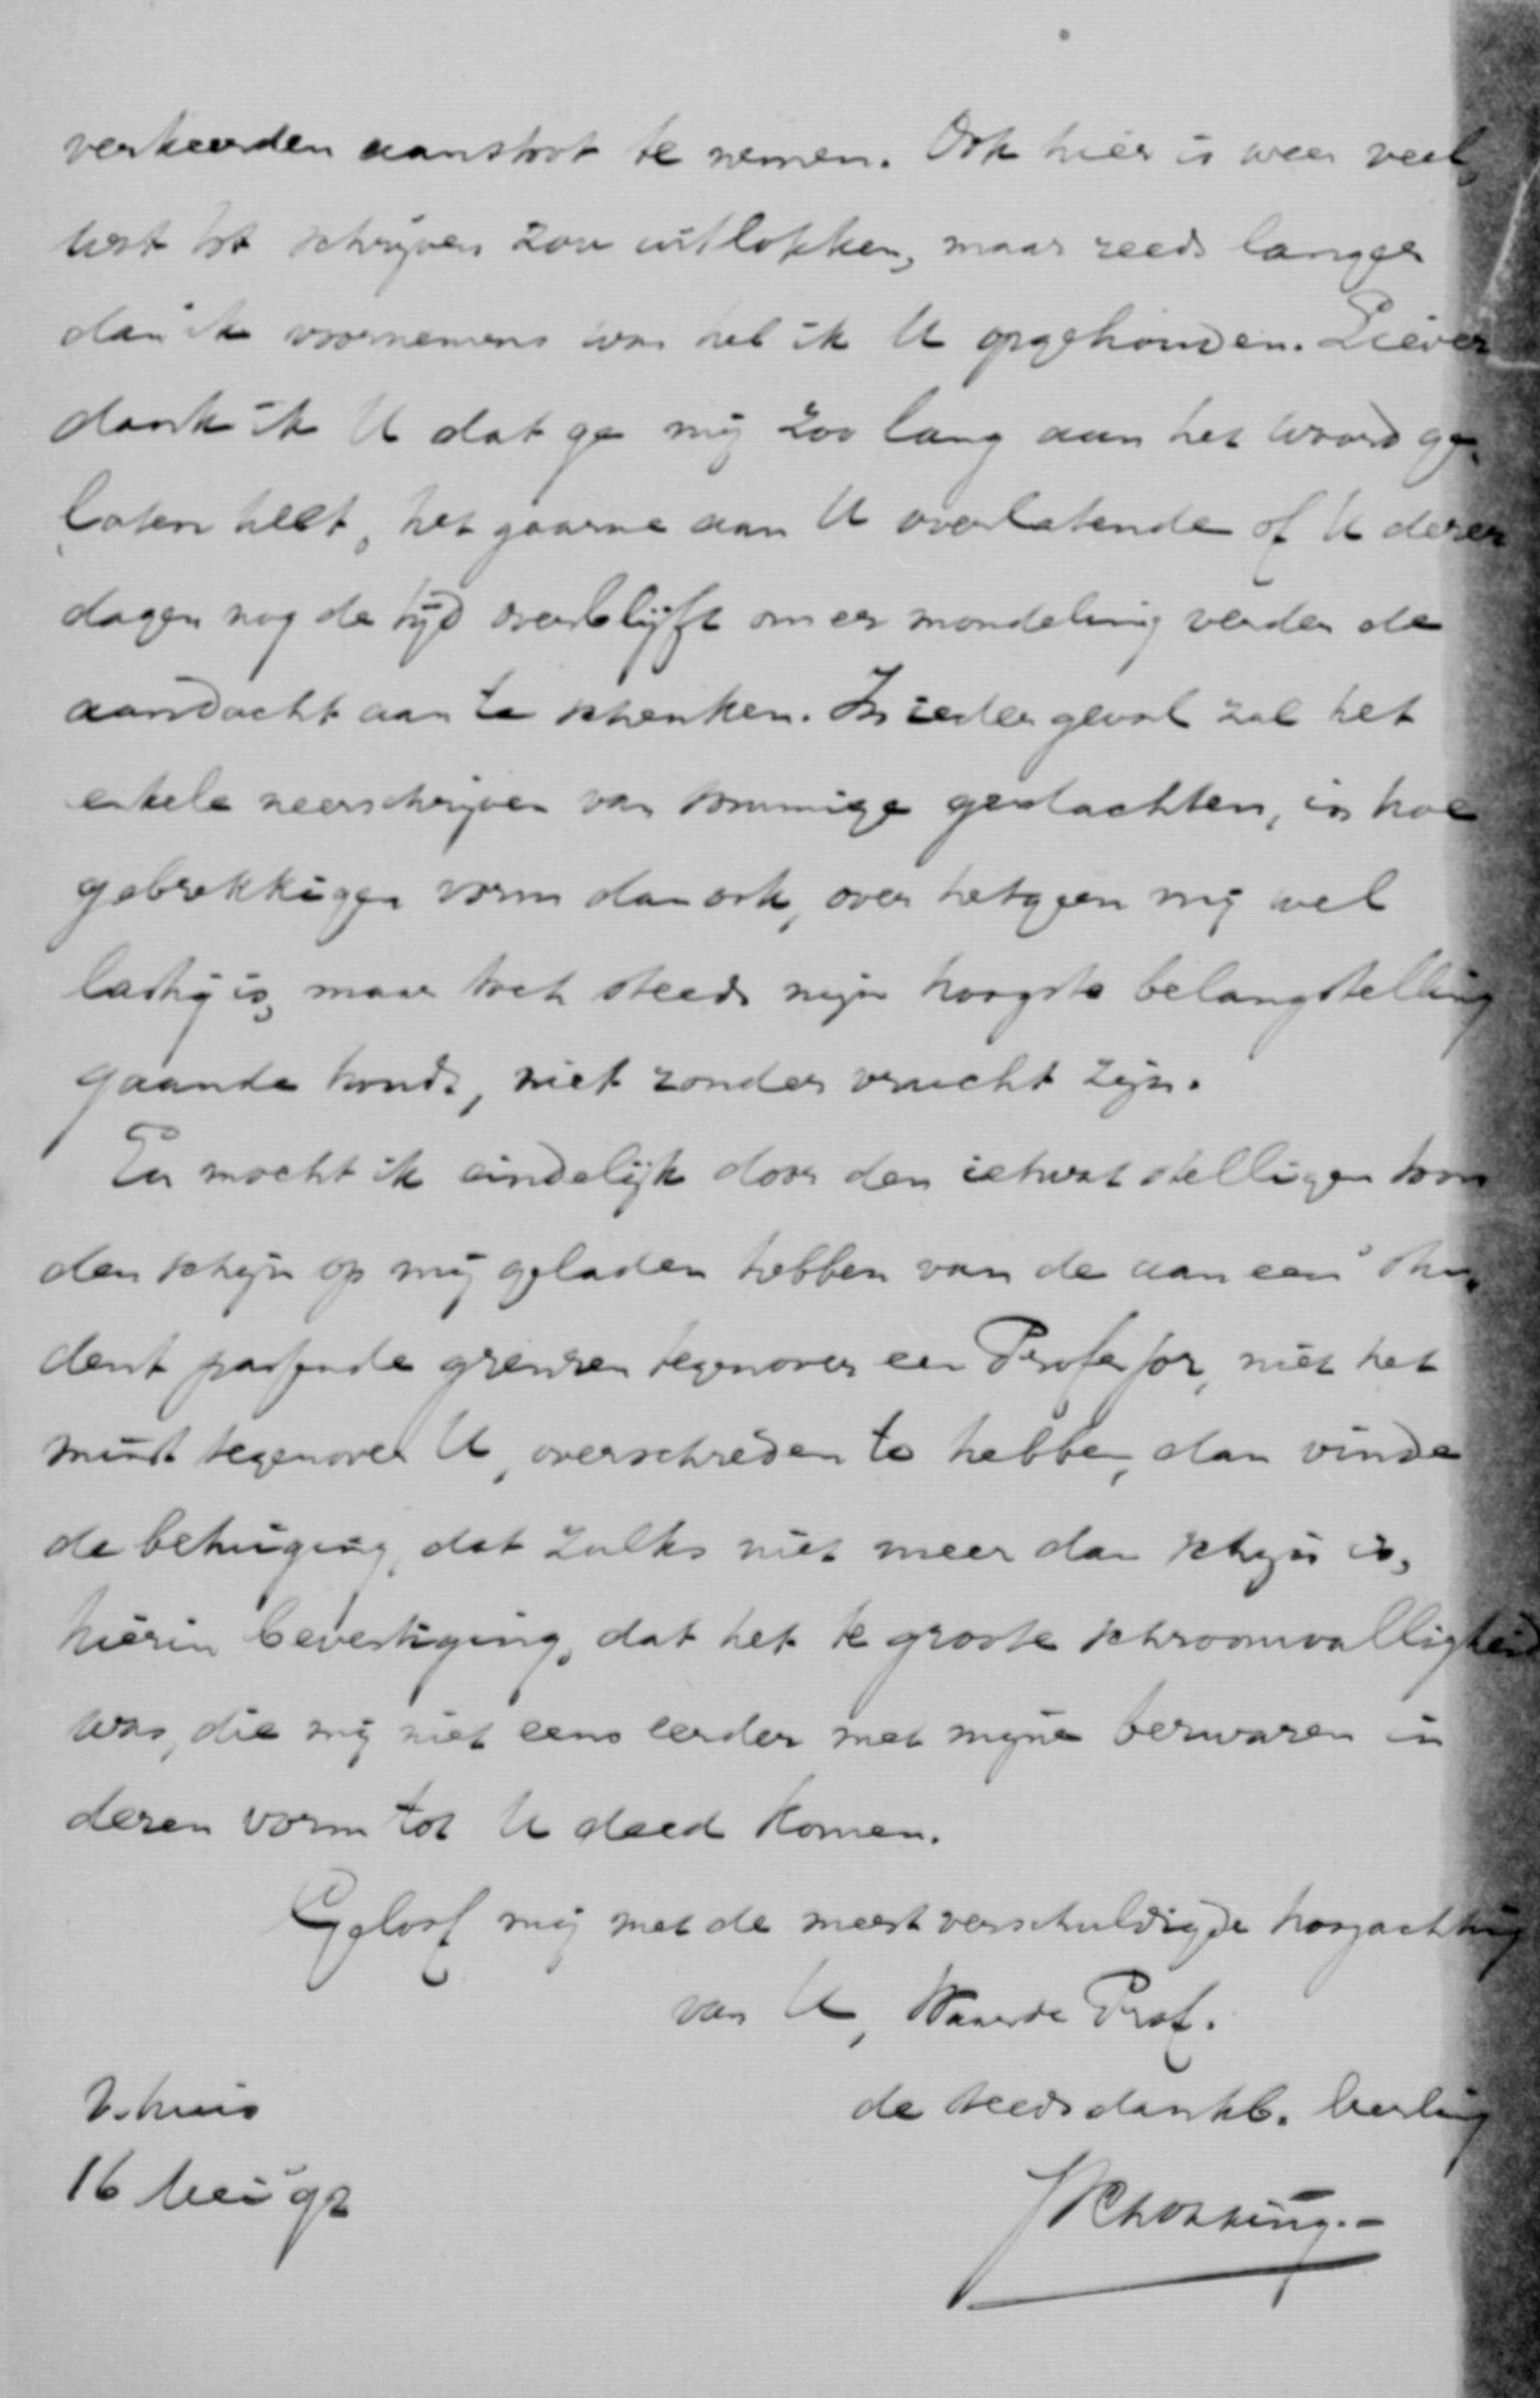 verkeerden aanstoot te nemen. Ook hier is weer veel,
tot schrijven zou uitlokken, maar reeds langer
dan ik voornemens was heb ik U opgehouden. Liever
dank ik U dat ge mij zoo lang aan het woord ge-
laten hebt, het gaarne aan U overlatende of U dezer
dagen nog de tijd overblijft om er mondeling verder de
aandacht aan te schenken. In ieder geval zal het
enkele neerschrijven van sommige gedachten, in hoe
gebrekkigen vorm dan ook, over hetgeen mij wel
lastig is, maar toch steeds mijn hoogste belangstelling
gaande houdt, niet zonder vrucht zijn.
En mocht ik eindelijk door den ietwat stelligen toon
den schijn op mij geladen hebben van de aan een stu-
dent passende grenzen tegenover een Professor, niet het
minst tegenover U, overschreden te hebben, dan vinde
de betuiging, dat zulks niet meer dan schijn is,
hierin bevestiging, dat het te groote schroomvalligheid
was, die mij niet eens eerder met mijne bezwaren in
dezen vorm tot U deed komen.
Geloof mij met de meest verschuldigde hoogachting
van U, Waarde Prof.
de steeds dankb. leerling
V. huis
16 Mei 92
JSchokking.-